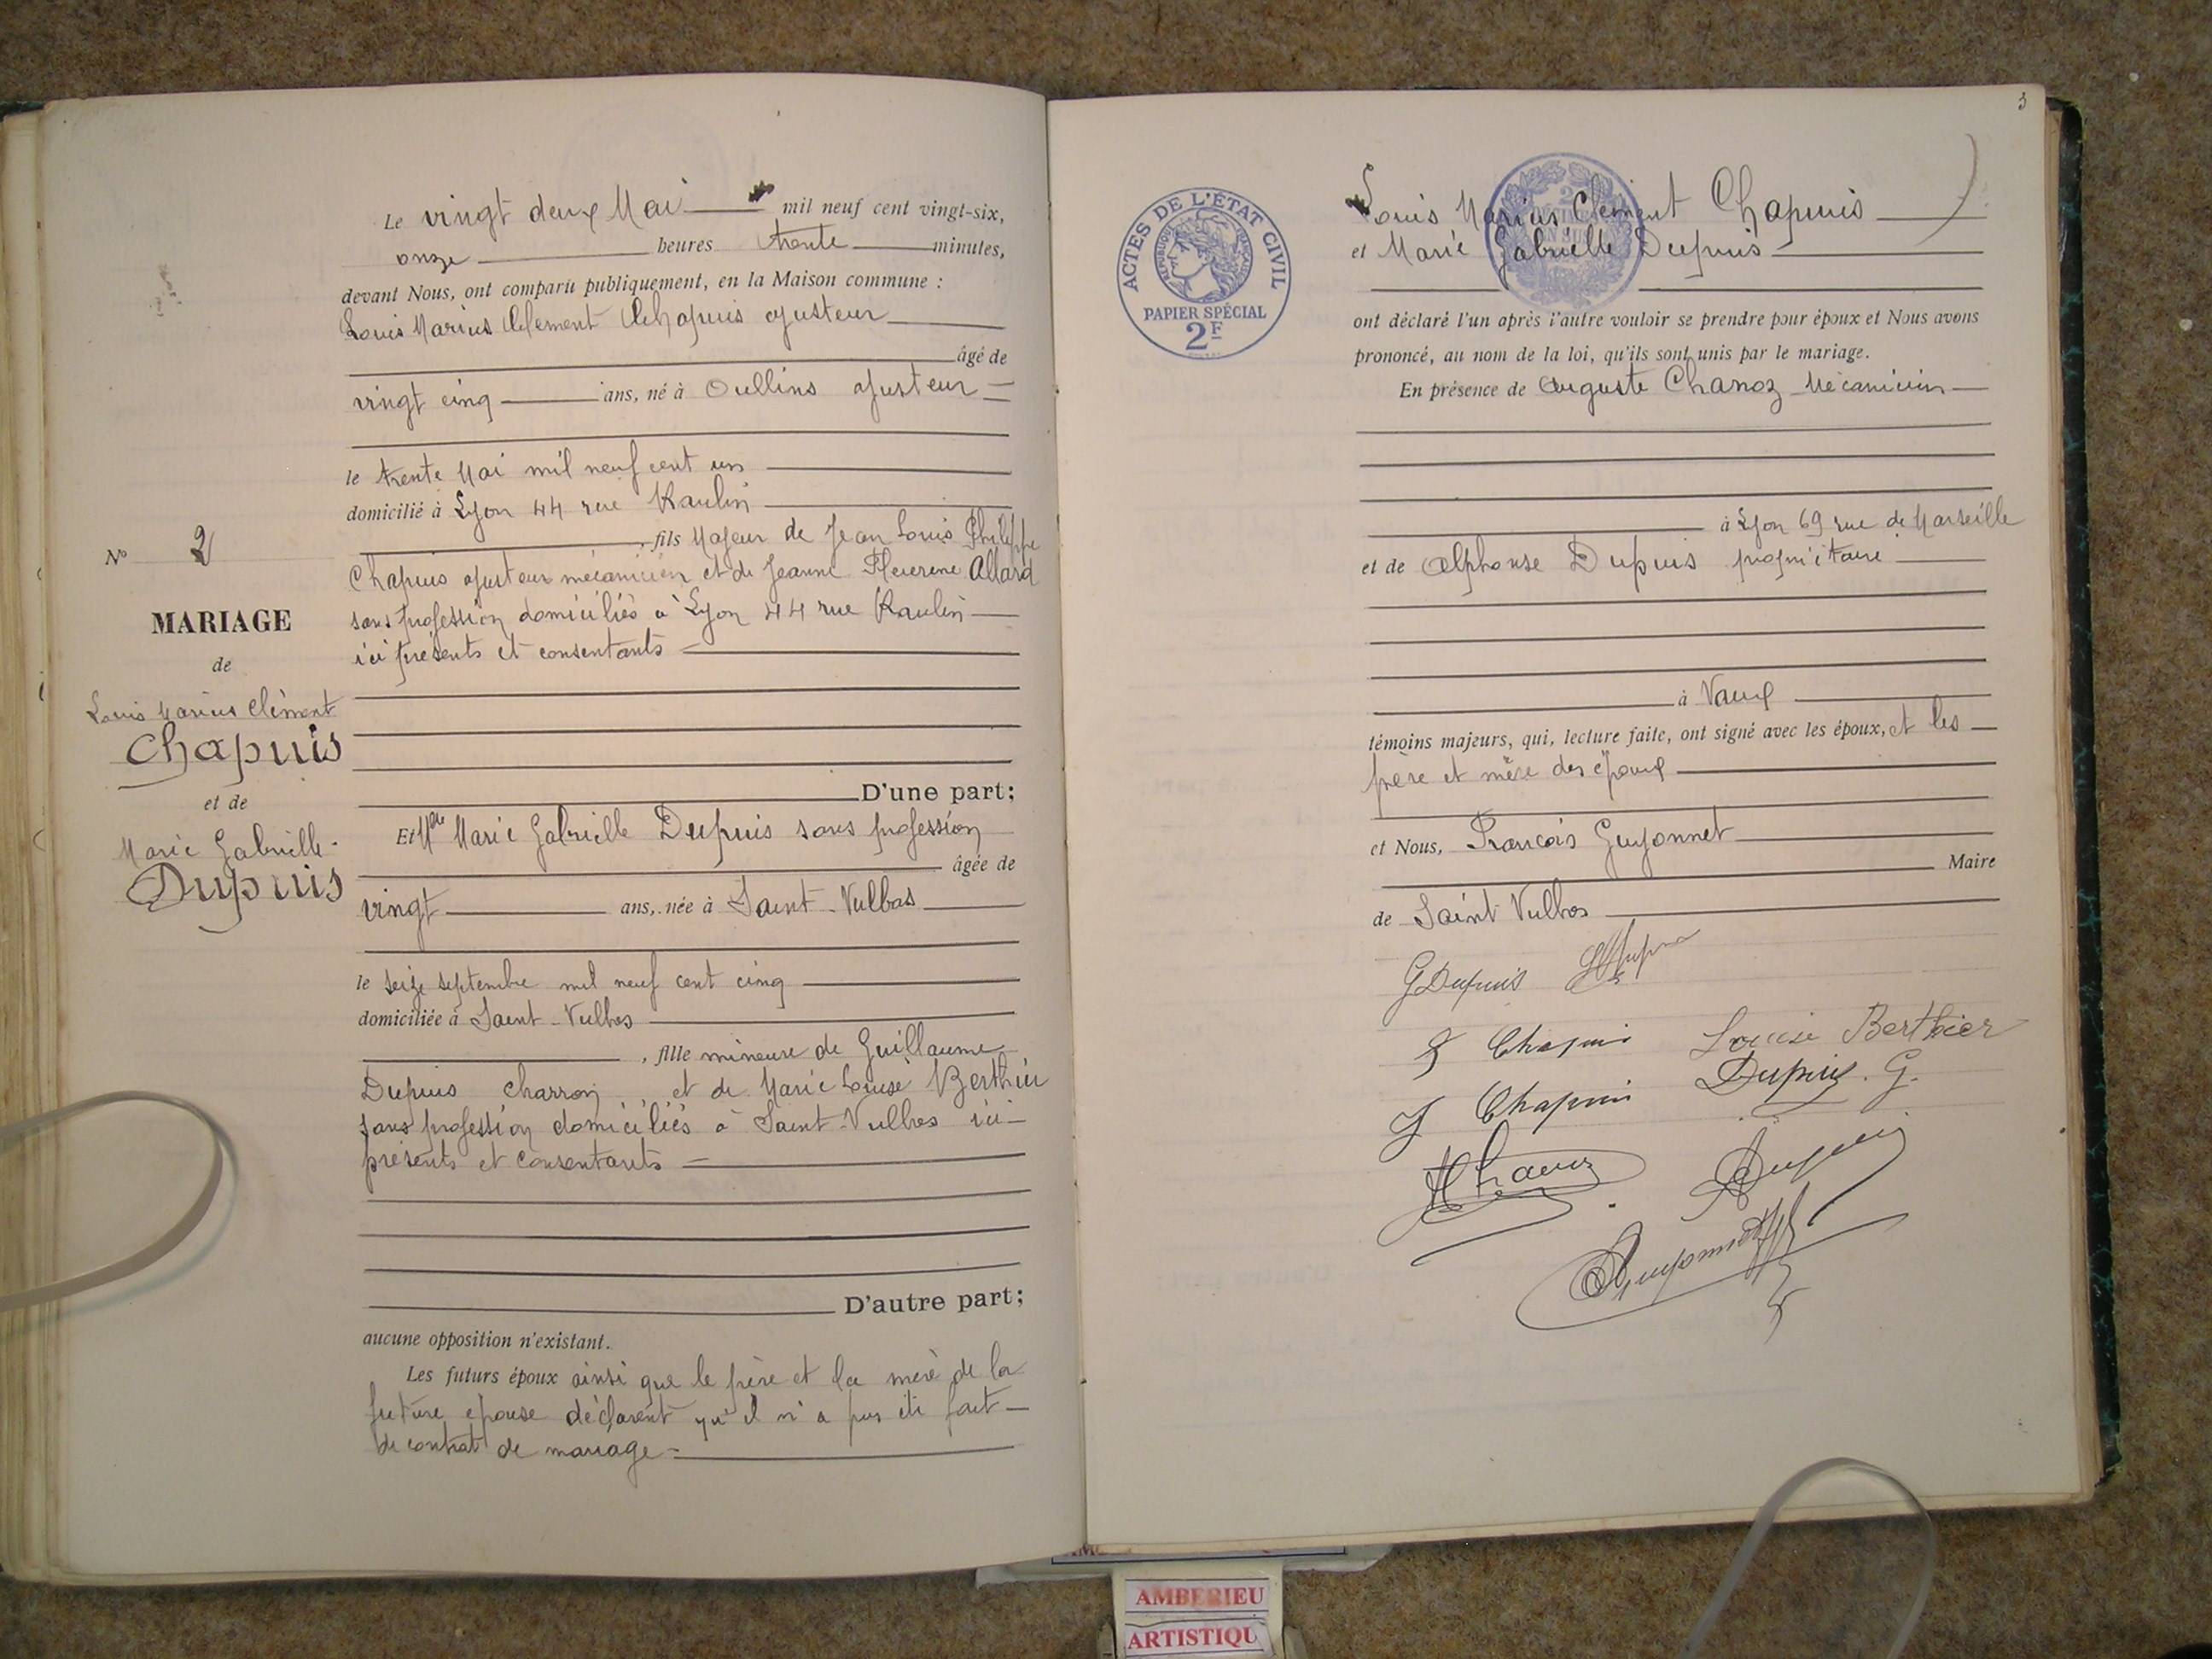 N° 2
MARIAGE
de
Louis Marius Clément
Chapuis
et de
Marie Gabrielle
Dupuis
Le vingt deux Mai mil neuf cent vingt-six,
onze heures trente minutes,
devant Nous, ont comparu publiquement, en la Maison commune :
Louis Marius Clement Chapuis ajusteur
âgé de
vingt cinq ans, né à Oullins ajusteur
le trente Mai mil neuf cent un
domicilié à Lyon 44 rue Raulin
, fils Majeur de Jean Louis Philippe
Chapuis ajusteur mécanicien et de Jeanne Allard
sans profession domiciliés à Lyon 44 rue Raulin
ici présents et consentants
D'une part;
Et Mlle Marie Gabrielle Dupuis sans profession
âgée de
vingt ans, née à Saint-Vulbas
le seize septembre mil neuf cent cinq
domiciliée à Saint-Vulbas
, fille mineure de Guillaume
Dupuis charron et de Marie Louise Berthier
sans profession domiciliés à Saint-Vulbas ici
présents et consentants
D'autre part;
aucune opposition n'existant.
Les futurs époux ainsi que le père et la mère de la
future épouse déclarent qu'il n'a pas été fait
de contrat de mariage
3
ACTES DE L'ÉTAT CIVIL
RÉPUBLIQUE FRANÇAISE
PAPIER SPÉCIAL
2F
Louis Marius Clément Chapuis
et Marie Gabrielle Dupuis
ont déclaré l'un après l'autre vouloir se prendre pour époux et Nous avons
prononcé, au nom de la loi, qu'ils sont unis par le mariage.
En présence de Auguste Chanoz Mécanicien
à Lyon 69 rue de Marseille
et de Alphonse Dupuis propriétaire
à Vaux
témoins majeurs, qui, lecture faite, ont signé avec les époux, et les
père et mère des époux
et Nous, François Guyonnet
Maire
de Saint Vulbas
G Dupuis
Chapuis Louise Berthier
J Chapuis Dupuis. G.
Dupuis
Guyonnet
AMBERIEU
ARTISTIQU